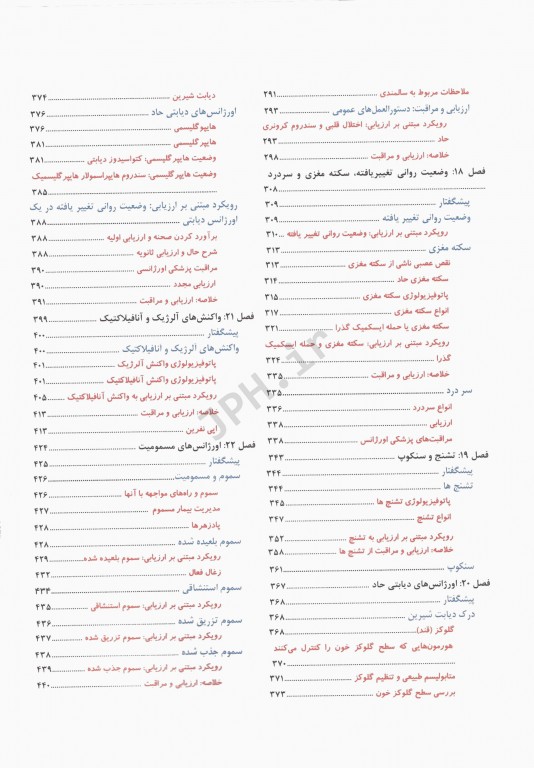 ملاحظات مربوط به سالمندی ........ ۲۹۱
ارزیابی و مراقبت: دستورالعمل‌های عمومی ........ ۲۹۳
رویکرد مبتنی بر ارزیابی: اختلال قلبی و سندروم کرونری
حاد ........ ۲۹۳
خلاصه: ارزیابی و مراقبت ........ ۲۹۸
فصل ۱۸: وضعیت روانی تغییریافته، سکته مغزی و سردرد
........ ۳۰۸
پیشگفتار ........ ۳۰۹
وضعیت روانی تغییر یافته ........ ۳۰۹
رویکرد مبتنی بر ارزیابی: وضعیت روانی تغییر یافته .. ۳۱۰
سکته مغزی ........ ۳۱۳
نقص عصبی ناشی از سکته مغزی ........ ۳۱۳
سکته مغزی حاد ........ ۳۱۴
پاتوفیزیولوژی سکته مغزی ........ ۳۱۵
انواع سکته مغزی ........ ۳۱۷
سکته مغزی یا حمله ایسکمیک گذرا ........ ۳۲۱
رویکرد مبتنی بر ارزیابی: سکته مغزی و حمله ایسکمیک
گذرا ........ ۳۲۴
خلاصه: ارزیابی و مراقبت ........ ۳۳۵
سر درد ........ ۳۳۵
انواع سردرد ........ ۳۳۶
ارزیابی ........ ۳۳۸
مراقبت‌های پزشکی اورژانس ........ ۳۳۸
فصل ۱۹: تشنج و سنکوپ ........ ۳۴۳
پیشگفتار ........ ۳۴۴
تشنج ها ........ ۳۴۴
پاتوفیزیولوژی تشنج ها ........ ۳۴۵
انواع تشنج ........ ۳۴۷
رویکرد مبتنی بر ارزیابی به تشنج ........ ۳۵۲
خلاصه: ارزیابی و مراقبت از تشنج ها ........ ۳۵۸
سنکوپ ........ ۳۶۱
فصل ۲۰: اورژانس‌های دیابتی حاد ........ ۳۶۷
پیشگفتار ........ ۳۶۸
درک دیابت شیرین ........ ۳۶۸
گلوکز (قند) ........ ۳۶۸
هورمون‌هایی که سطح گلوکز خون را کنترل می‌کنند
........ ۳۷۰
متابولیسم طبیعی و تنظیم گلوکز ........ ۳۷۱
بررسی سطح گلوکز خون ........ ۳۷۳
دیابت شیرین ........ ۳۷۴
اورژانس‌های دیابتی حاد ........ ۳۷۶
هایپوگلیسمی ........ ۳۷۶
هایپرگلیسمی ........ ۳۸۱
وضعیت هایپرگلیسمی: کتواسیدوز دیابتی ........ ۳۸۱
وضعیت هایپرگلیسمی: سندروم هایپراسمولار هایپرگلیسمیک
........ ۳۸۵
رویکرد مبتنی بر ارزیابی: وضعیت روانی تغییر یافته در یک
اورژانس دیابتی ........ ۳۸۸
برآورد کردن صحنه و ارزیابی اولیه ........ ۳۸۸
شرح حال و ارزیابی ثانویه ........ ۳۸۸
مراقبت پزشکی اورژانسی ........ ۳۹۰
ارزیابی مجدد ........ ۳۹۰
خلاصه: ارزیابی و مراقبت ........ ۳۹۱
فصل ۲۱: واکنش‌های آلرژیک و آنافیلاکتیک ........ ۳۹۹
پیشگفتار ........ ۴۰۰
واکنش‌های آلرژیک و آنافیلاکتیک ........ ۴۰۰
پاتوفیزیولوژی واکنش آلرژیک ........ ۴۰۱
پاتوفیزیولوژی واکنش آنافیلاکتیک ........ ۴۰۱
رویکرد مبتنی بر ارزیابی به واکنش آنافیلاکتیک ..... ۴۰۵
خلاصه: ارزیابی و مراقبت ........ ۴۱۳
اپی نفرین ........ ۴۱۳
فصل ۲۲: اورژانس‌های مسمومیت ........ ۴۲۴
پیشگفتار ........ ۴۲۵
سموم و مسمومیت ........ ۴۲۶
سموم و راه‌های مواجهه با آنها ........ ۴۲۶
مدیریت بیمار مسموم ........ ۴۲۷
پادزهرها ........ ۴۲۸
سموم بلعیده شده ........ ۴۲۸
رویکرد مبتنی بر ارزیابی: سموم بلعیده شده ........ ۴۲۹
زغال فعال ........ ۴۳۲
سموم استنشاقی ........ ۴۳۴
رویکرد مبتنی بر ارزیابی: سموم استنشاقی ........ ۴۳۵
سموم تزریق شده ........ ۴۳۶
رویکرد مبتنی بر ارزیابی: سموم تزریق شده ........ ۴۳۷
سموم جذب شده ........ ۴۳۸
رویکرد مبتنی بر ارزیابی: سموم جذب شده ........ ۴۳۹
خلاصه: ارزیابی و مراقبت ........ ۴۴۰
JPH.ir